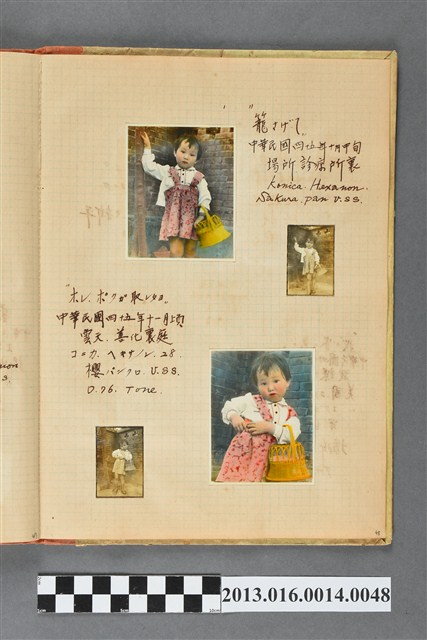 "籠さげて"
中華民國四五年十月中旬
場所 診療所裏
Konica. Hexanon.
Sakura pan U.SS.
中華民國四五年十一月上旬
曇天. 善化裏庭
コニカ. ヘキサノン. 28.
櫻パンクロ. U.SS.
D.76. Tone.
2013.016.0014.0048